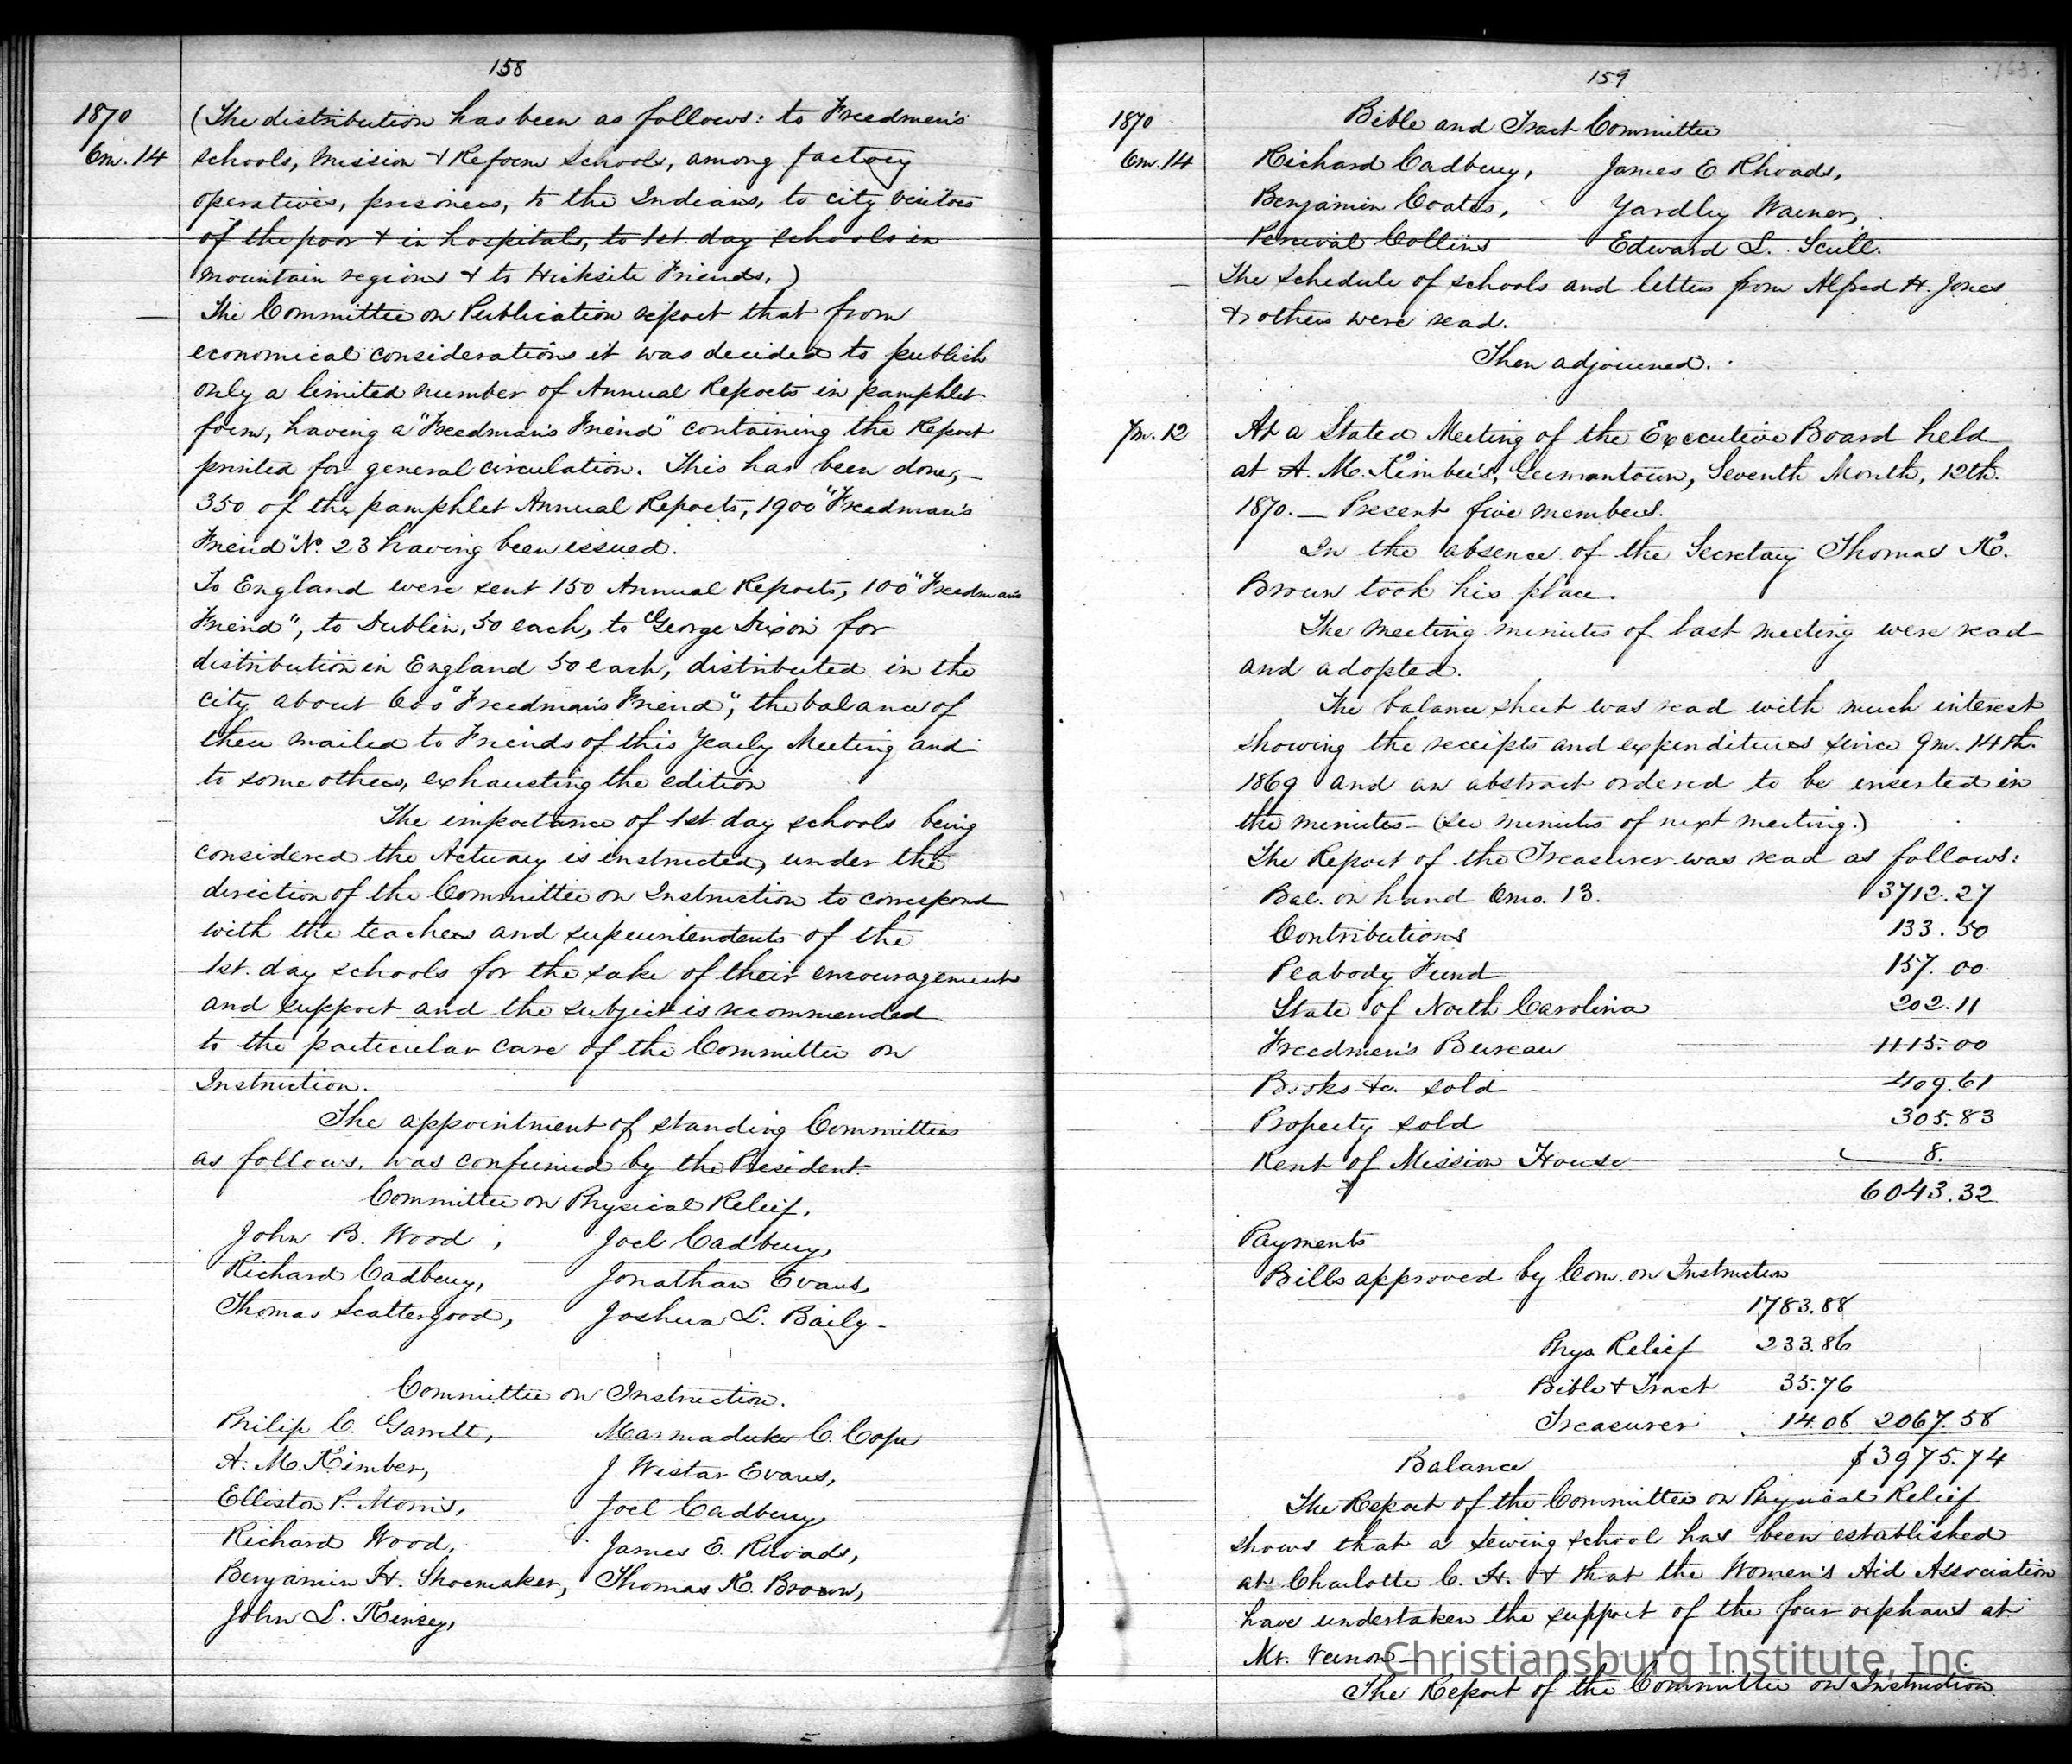 158
1870
6m. 14
(The distribution has been as follows: to Freedmen's
schools, Mission & Reform Schools, among factory
operatives, prisoners, to the Indians, to city visitors
of the poor & in hospitals, to 1st. day schools in
mountain regions & to Hicksite Friends.)
— The Committee on Publication report that from
economical considerations it was decided to publish
only a limited number of Annual Reports in pamphlet
form, having a "Freedman's Friend" containing the Report
printed for general circulation. This has been done, —
350 of the pamphlet Annual Reports, 1900 "Freedman's
Friend" No. 23 having been issued.
To England were sent 150 Annual Reports, 100 "Freedman's
Friend", to Dublin, 50 each, to George Dixon for
distribution in England 50 each, distributed in the
city about 600 "Freedman's Friend", the balance of
these mailed to Friends of this Yearly Meeting and
to some others, exhausting the edition
The importance of 1st. day schools being
considered the Actuary is instructed, under the
direction of the Committee on Instruction to correspond
with the teachers and superintendents of the
1st. day schools for the sake of their encouragement
and support and the subject is recommended
to the particular care of the Committee on
Instruction.
The appointment of standing Committees
as follows, was confirmed by the President.
Committee on Physical Relief.
John B. Wood, Joel Cadbury,
Richard Cadbury, Jonathan Evans,
Thomas Scattergood, Joshua L. Baily —
Committee on Instruction.
Philip C. Garrett, Marmaduke C. Cope
A. M. Kimber, J. Wistar Evans,
Elliston P. Morris, Joel Cadbury,
Richard Wood, James E. Rhoads,
Benjamin H. Shoemaker, Thomas K. Brown,
John L. Kinsey,
159
1870
6m. 14
Bible and Tract Committee
Richard Cadbury, James E. Rhoads,
Benjamin Coates, Yardley Warner,
Percival Collins Edward L. Scull.
— The schedule of schools and letters from Alfred H. Jones
& others were read.
Then adjourned.
7m. 12
At a Stated Meeting of the Executive Board held
at A. M. Kimber's, Germantown, Seventh Month, 12th.
1870. — Present five members.
In the absence of the Secretary Thomas K.
Brown took his place.
The meeting minutes of last meeting were read
and adopted.
The balance sheet was read with much interest
showing the receipts and expenditures since 9m. 14th.
1869 and an abstract ordered to be inserted in
the minutes — (see minutes of next meeting.)
The Report of the Treasurer was read as follows:
Bal. on hand 6mo. 13. 3712.27
Contributions 133.50
Peabody Fund 157.00
State of North Carolina 202.11
Freedmen's Bureau 1115.00
Books &c. sold 409.61
Property sold 305.83
Rent of Mission House 8.
6043.32
Payments
Bills approved by Com. on Instruction
1783.88
Phys Relief 233.86
Bible & Tract 35.76
Treasurer 14.08 2067.58
Balance $3975.74
The Report of the Committee on Physical Relief
shows that a sewing school has been established
at Charlotte C. H. & that the Women's Aid Association
have undertaken the support of the four orphans at
Mt. Vernon —
Christiansburg Institute, Inc
The Report of the Committee on Instruction